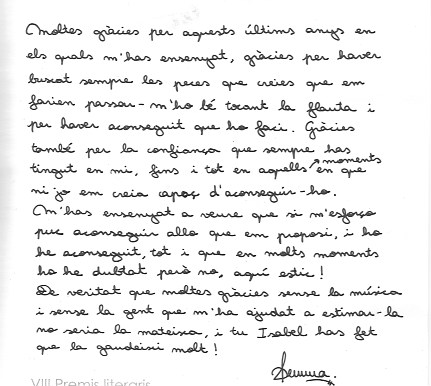 Moltes gràcies per aquests últims anys en
els quals m'has ensenyat, gràcies per haver
buscat sempre les peces que creies que em
farien passar-m'ho bé tocant la flauta i
per haver aconseguit que ho faci. Gràcies
també per la confiança que sempre has
tingut en mi, fins i tot en aquells moments en que
ni jo em creia capaç d'aconseguir-ho.
M'has ensenyat a veure que si m'esforço
puc aconseguir allo que em proposi, i ho
he aconseguit, tot i que en molts moments
ho he dubtat però no, aquí estic!
De veritat que moltes gràcies sense la música
i sense la gent que m'ha ajudat a estimar-la
no seria la mateixa, i tu Isabel has fet
que la gaudeixi molt!
VIII Premis literaris